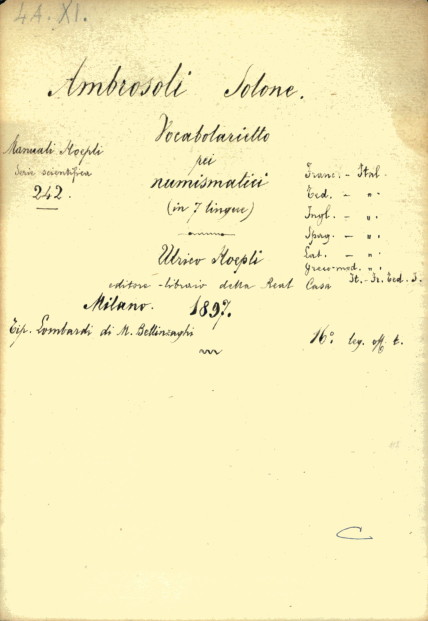 4A. XI.
Ambrosoli Solone.
Vocabolarietto
pei
numismatici
(in 7 lingue)
Manuali Hoepli
Serie scientifica
242.
Franc. - Ital.
Ted. - "
Ingl. - "
Spag. - "
Lat. - "
greco-mod. "
It. - Fr. Ted. I.
Ulrico Hoepli
editore-libraio della Real Casa
Milano. 1897.
Tip. Lombardi di M. Bellinzaghi
16° leg. off. t.
C